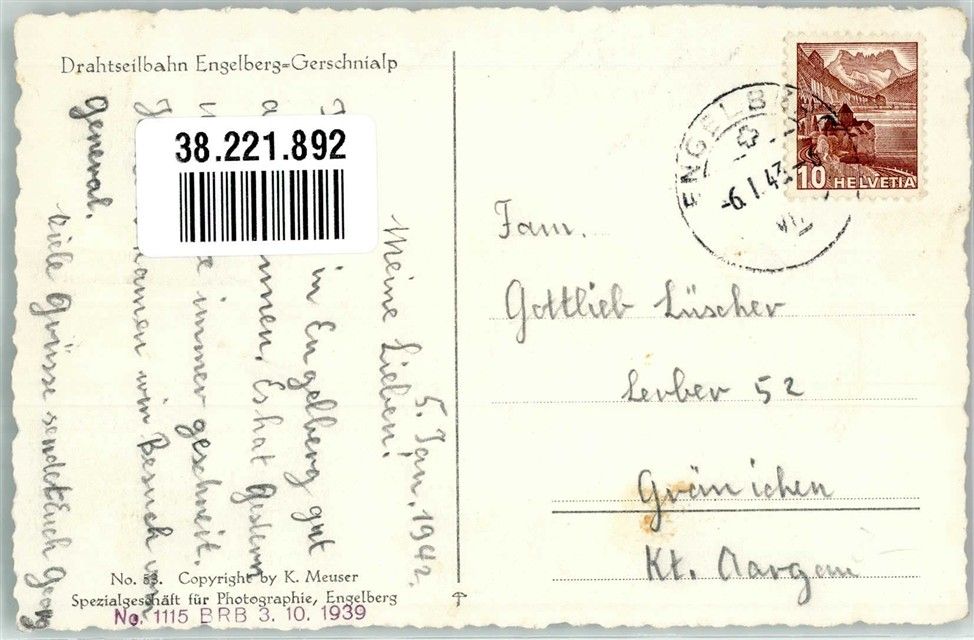 Drahtseilbahn Engelberg=Gerschnialp
38.221.892
5. Jan. 1942.
Meine Lieben!
in Engelberg gut
Es hat gestern
immer geschneit.
kamen wir Besuch vom
General.
Viele Grüsse sendet Euch Georg
No. 53. Copyright by K. Meuser
Spezialgeschäft für Photographie, Engelberg
No. 1115 BRB 3. 10. 1939
ENGELBERG
-6. I. 42
10 HELVETIA
Fam.
Gottlieb Lüscher
Lerber 52
Gränichen
Kt. Aargau